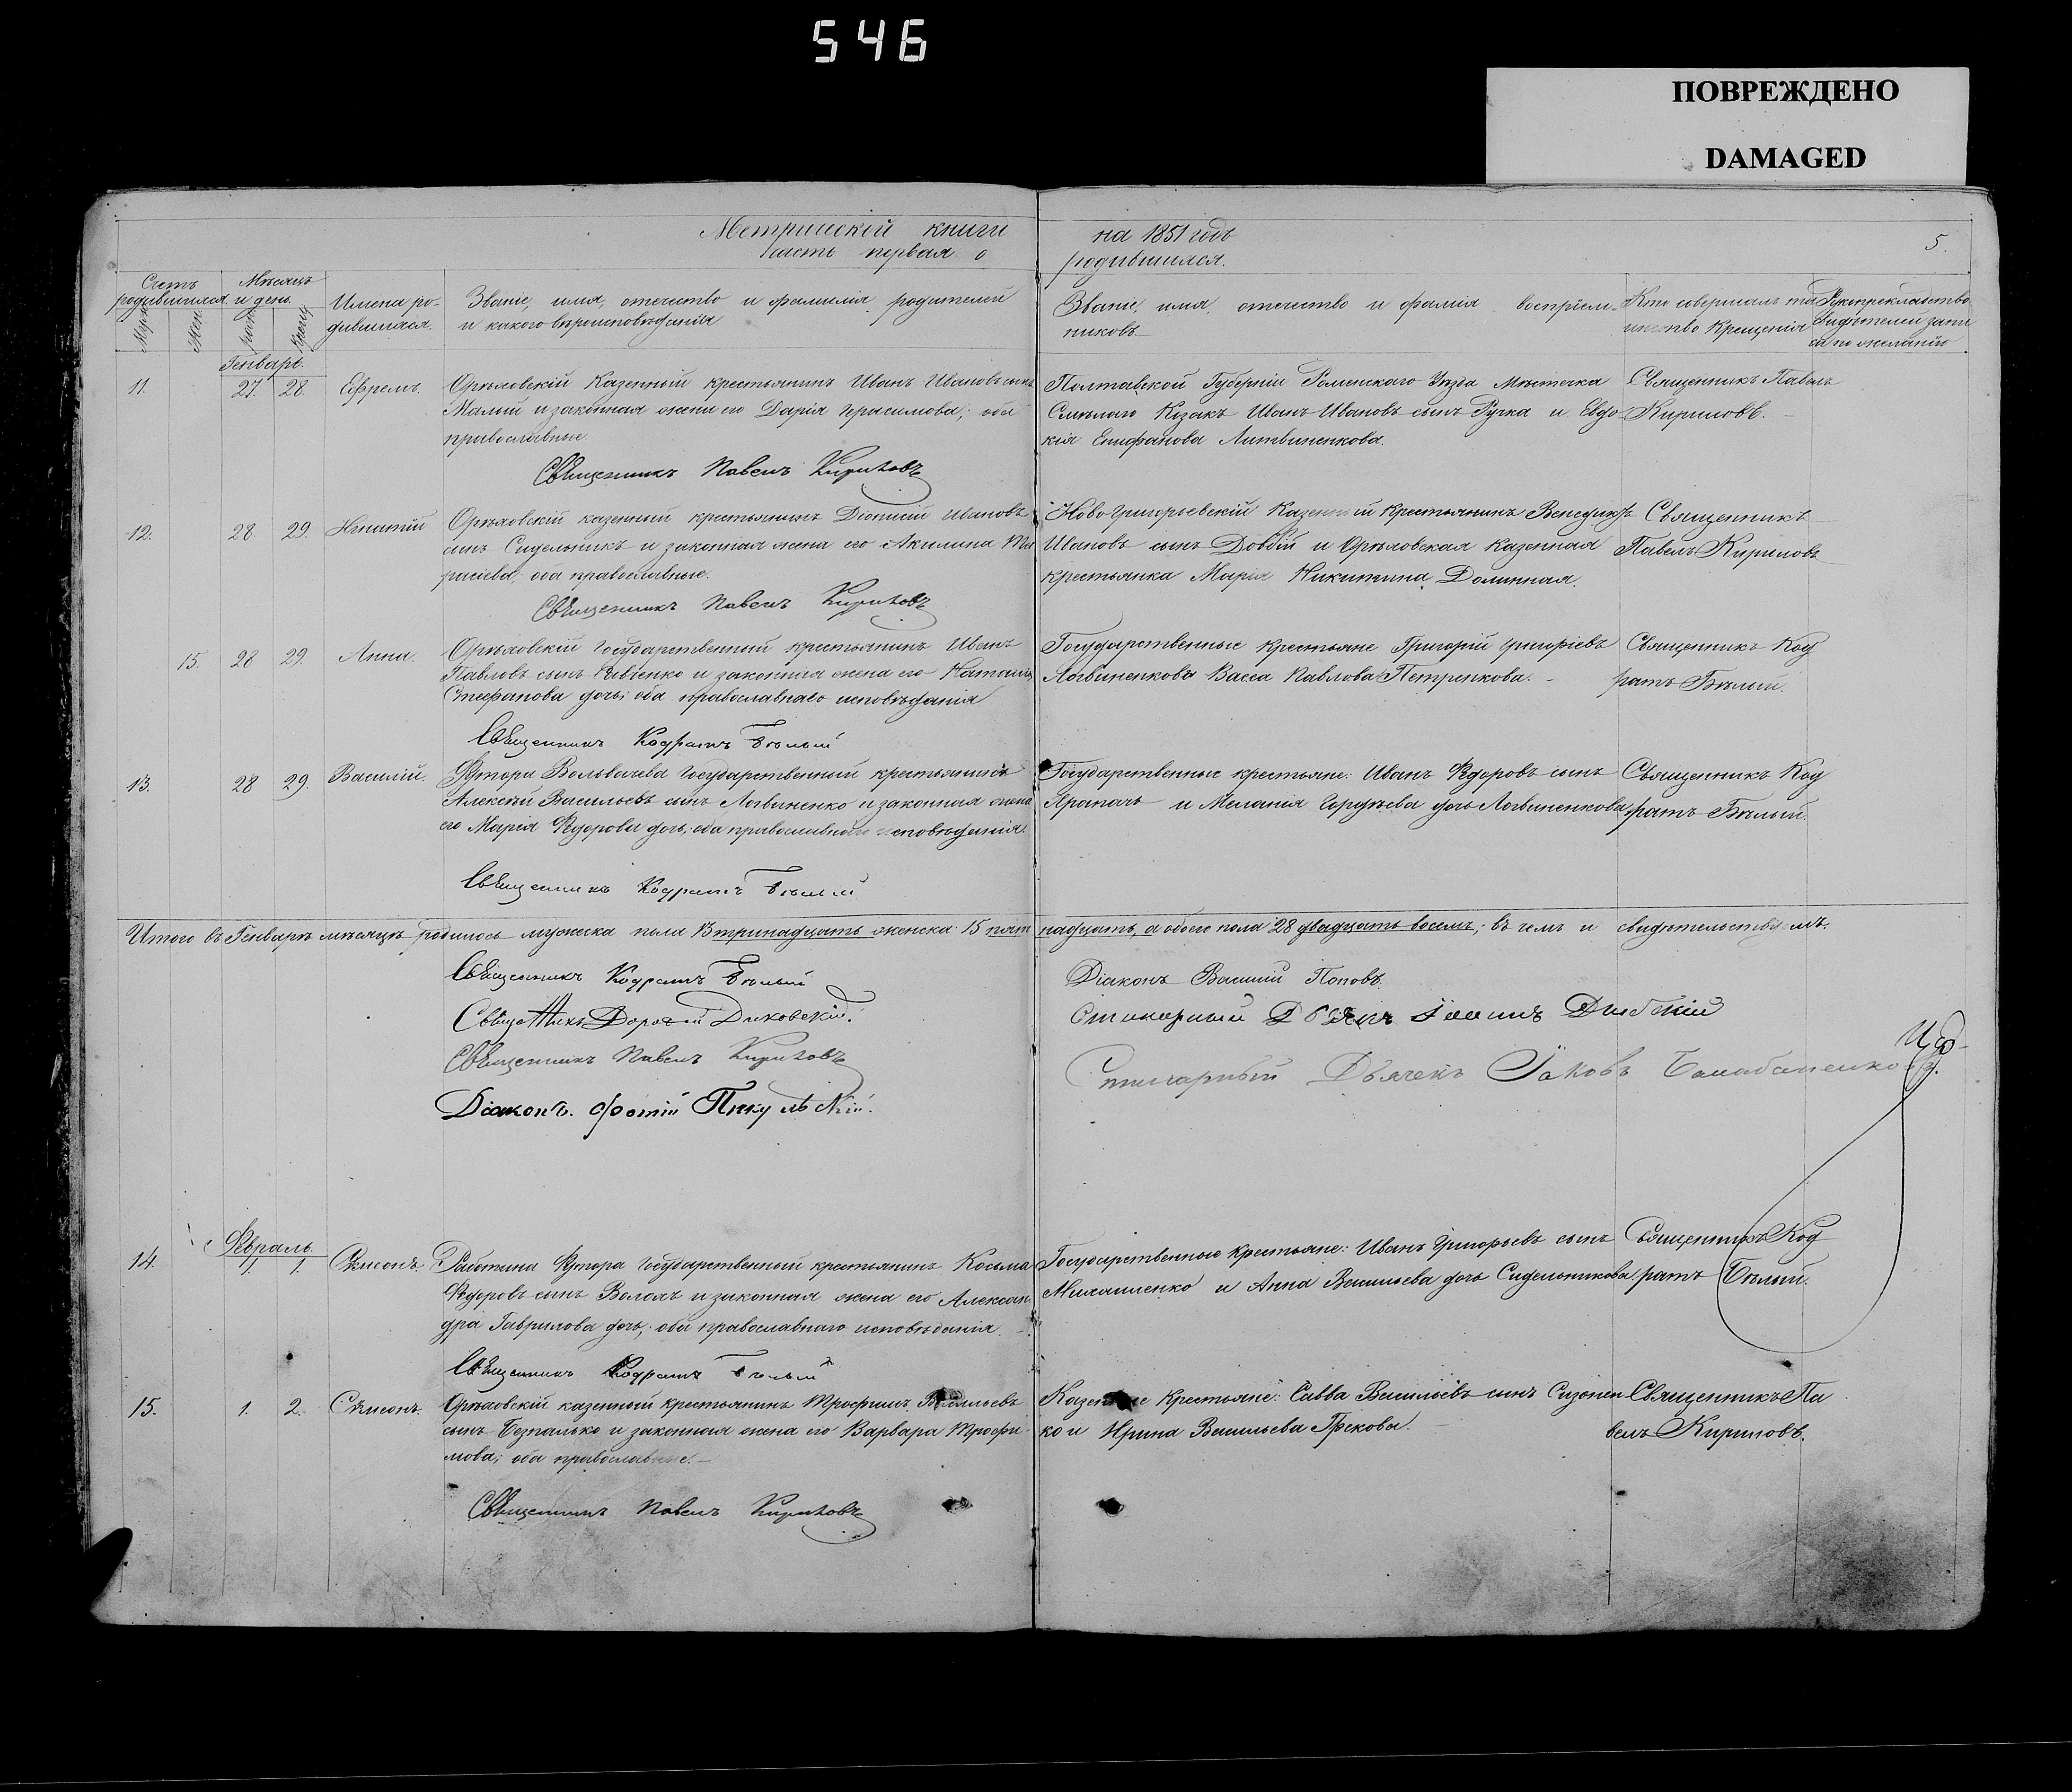 546
ПОВРЕЖДЕНО
DAMAGED
Метрической книги на 1851 годъ
часть первая о родившихся.
5.
Счетъ родившихся
Муж.
Жен.
Мѣсяцъ и день
рожд.
крещ.
Имена родившихся.
Званіе, имя, отечество и фамилія родителей
и какого вѣроисповѣданія
Званіе, имя, отечество и фамілія воспріем-
никовъ
Кто совершалъ та
инство Крещенія
Рукоприкладство
свидѣтелей запи
си по желанію
Генварь.
11.
27. 28.
Ефремъ.
Орѣховскій Казенный крестьянинъ Иванъ Ивановъ сынъ
Малый и законная жена его Дарія Герасимова; оба
православные.
Полтавской Губерніи Роменскаго Уѣзда Мѣстечка
Смѣлаго Козакъ Иванъ Ивановъ сынъ Ручка и Евдо
кія Епифанова Литвиненкова.
Священникъ Павелъ
Кириловъ.
Священникъ Павелъ Кириловъ
12.
28. 29.
Игнатій
Орѣховскій казенный крестьянинъ Діонисій Ивановъ
сынъ Сидельникъ и законная жена его Акилина Та
расіева; оба православные.
Ново-Григорьевскій Казенный крестьянинъ Венедиктъ
Ивановъ сынъ Довбій и Орѣховская казенная
крестьянка Марія Никитина Долинная.
Священникъ
Павелъ Кириловъ
Священникъ Павелъ Кириловъ
15.
28 29.
Анна.
Орѣховскій Государственный крестьянинъ Иванъ
Павловъ сынъ и законная жена его Наталія
Стефанова дочь; оба православнаго исповѣданія
Государственные крестьяне Григорій Григоріевъ
Логвиненковъ Васса Павлова Петренкова.
Священникъ Код
ратъ Бѣлый.
Священникъ Кодратъ Бѣлый
13.
28 29.
Василій.
Футора Вольвачева Государственный крестьянинъ
Алексѣй Васильевъ сынъ Логвиненко и законная жена
его Марія Ѳедорова дочь; оба православнаго исповѣданія.
Государственные крестьяне: Иванъ Ѳедоровъ сынъ
и Меланія Гордѣева дочь Логвиненкова
Священникъ Код
ратъ Бѣлый.
Священникъ Кодратъ Бѣлый
Итого въ Генварѣ мѣсяцѣ родилось мужеска пола 13 тринадцать женска 15 пятнадцать, а обоего пола 28 двадцать восемь; въ чемъ и свидѣтельствуемъ:
Священникъ Кодратъ Бѣлый
Священникъ Дорофей Диковскій.
Священникъ Павелъ Кириловъ
Діаконъ. Фотій Пикульскій.
Діаконъ Василій Поповъ.
Стихарный Дьячекъ Іоаннъ
Стихарный Дьячекъ Іаковъ Балабаненковъ.
Февраль.
14.
1. 1.
Сѵмеонъ.
Работина Футора Государственный крестьянинъ Косьма
Ѳедоровъ сынъ Волохъ и законная жена его Алексан
дра Гаврилова дочь; оба православнаго исповѣданія.
Государственные крестьяне: Иванъ Григорьевъ сынъ
Михайленко и Анна Васильева дочь Сидельникова.
Священникъ Код
ратъ Бѣлый.
Священникъ Кодратъ Бѣлый
15.
1. 2.
Сѵмеонъ.
Орѣховскій казенный крестьянинъ Трофимъ Васильевъ
сынъ Безпалько и законная жена его Варвара Трофи
мова; оба православные.
Казенные Крестьяне: Савва Васильевъ сынъ Сизонен
ко и Ирина Васильева Грекова.
Священникъ Па
велъ Кириловъ.
Священникъ Павелъ Кириловъ